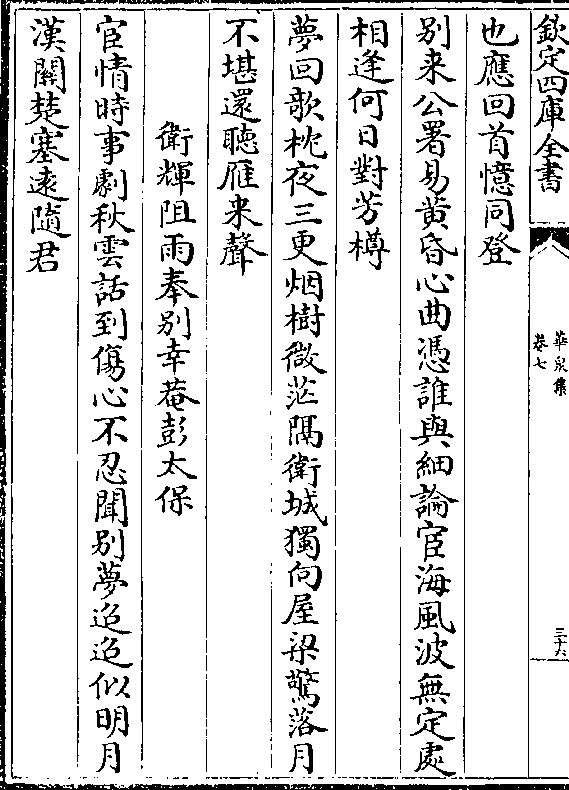 欽定四庫全書
華泉集
卷七
三十六
也應回首憶同登
别来公署易黄昏心曲憑誰與細論宦海風波無定處
相逢何日對芳樽
夢回歌枕夜三更烟樹微茫隔衛城獨向屋梁驚落月
不堪還聽雁来聲
衛輝阻雨奉别幸菴彭太保
宦情時事劇秋雲話到傷心不忍聞别夢迢迢似明月
漢關楚塞遠隨君